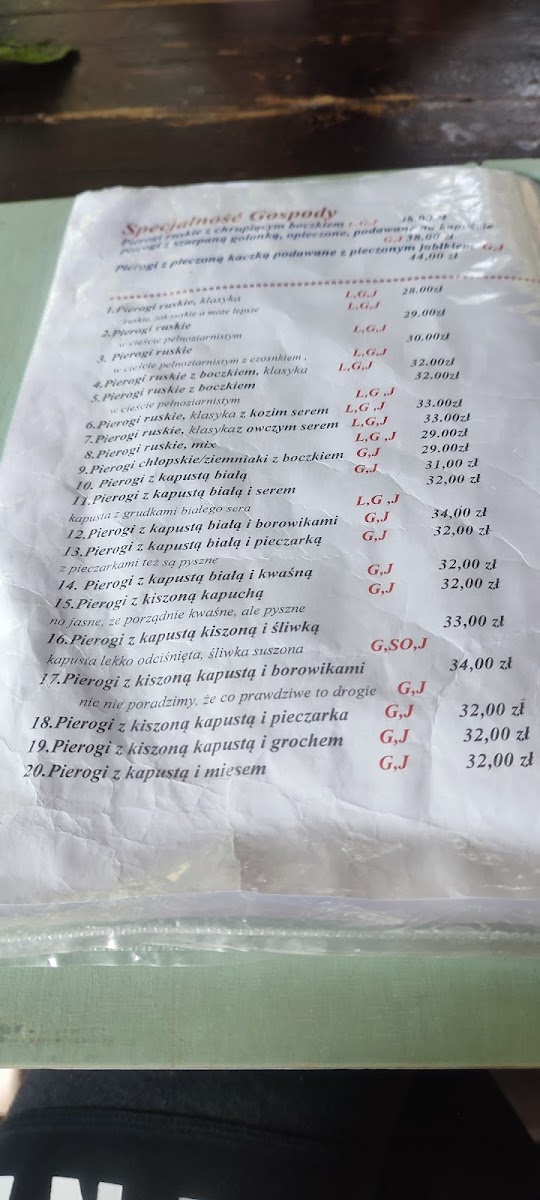 Specjalność Gospody
Pierogi ruskie z chrupiącym boczkiem L,G,J
pierogi z szarpaną golonką, opieczone, podawane na kapuście G,J 38,00 zł
Pierogi z pieczoną kaczką podawane z pieczonym jabłkiem G,J
44,00 zł
1.Pierogi ruskie, klasyka L,G,J 28.00zł
ruskie, jak ruskie a może lepsze L,G,J
2.Pierogi ruskie 29.00zł
w cieście pełnoziarnistym L,G,J
3. Pierogi ruskie 30.00zł
w cieście pełnoziarnistym z czosnkiem , L,G,J
4.Pierogi ruskie z boczkiem, klasyka L,G,J 32.00zł
5.Pierogi ruskie z boczkiem 32.00zł
w cieście pełnoziarnistym L,G ,J
6.Pierogi ruskie, klasyka z kozim serem L,G ,J 33.00zł
7.Pierogi ruskie, klasykaz owczym serem L,G,J 33.00zł
8.Pierogi ruskie, mix L,G ,J 29.00zł
9.Pierogi chłopskie/ziemniaki z boczkiem G,J 29.00zł
10. Pierogi z kapustą białą G,J 31,00 zł
11.Pierogi z kapustą białą i serem 32,00 zł
kapusta z grudkami białego sera L,G ,J
12.Pierogi z kapustą białą i borowikami G,J 34,00 zł
13.Pierogi z kapustą białą i pieczarką G,J 32,00 zł
z pieczarkami też są pyszne
14. Pierogi z kapustą białą i kwaśną G,J 32,00 zł
15.Pierogi z kiszoną kapuchą G,J 32,00 zł
no jasne, że porządnie kwaśne, ale pyszne
16.Pierogi z kapustą kiszoną i śliwką 33,00 zł
kapusta lekko odciśnięta, śliwka suszona G,SO,J
17.Pierogi z kiszoną kapustą i borowikami 34,00 zł
nic nie poradzimy, że co prawdziwe to drogie G,J
18.Pierogi z kiszoną kapustą i pieczarka G,J 32,00 zł
19.Pierogi z kiszoną kapustą i grochem G,J 32,00 zł
20.Pierogi z kapustą i miesem G,J 32,00 zł